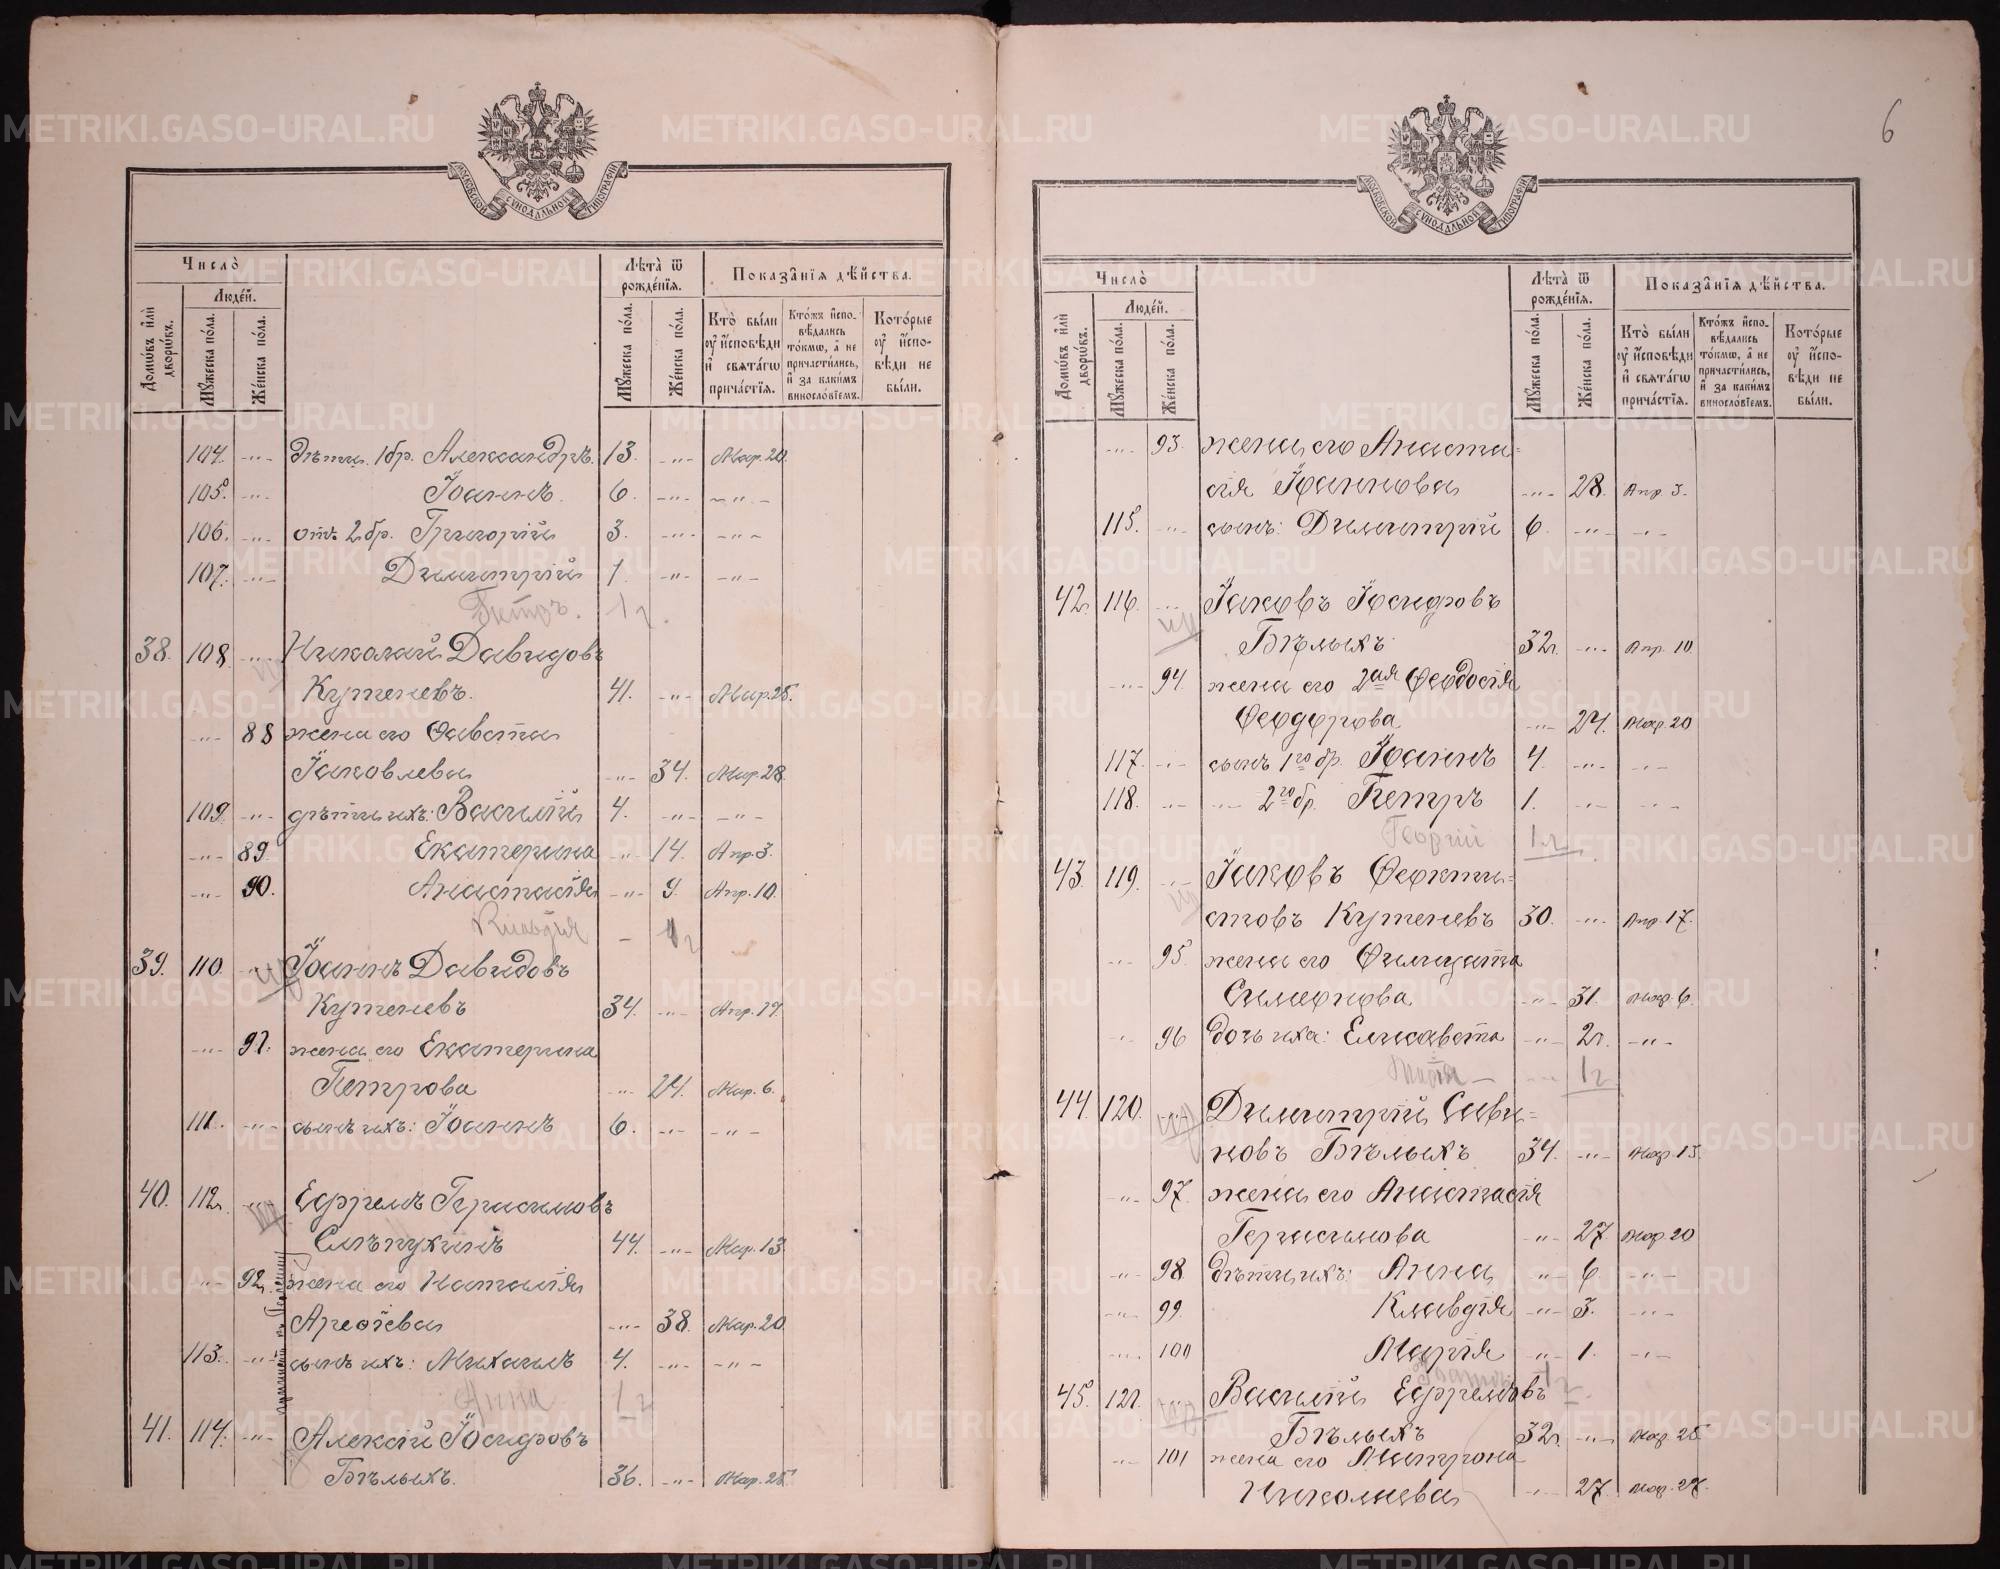 6
МОСКОВСКОЙ СѴНОДАЛЬНОЙ ТИПОГРАФІИ
Число̀
Людéй.
Домѡ́въ и҆лѝ дворѡ́въ.
Мꙋ́жеска по́ла.
Же́нска по́ла.
Лѣ́та ѿ рожде́нїѧ.
Мꙋ́жеска по́ла.
Же́нска по́ла.
Показа̑нїѧ дѣ́йства.
Кто̀ бы́ли ᲂу҆ и҆́сповѣди и҆ свѧта́гѡ прича́стїѧ.
Кто́жъ и҆спо-вѣ́дались то́кмѡ, а҆ не причасти́лись, и҆ за каки́мъ винослóвїемъ.
Кото́рые ᲂу҆ и҆́спо-вѣди не бы́ли.
104. -"- дѣти. 1 бр. Александръ. 13. -"- Мар. 20.
105. -"- Іоаннъ. 6. -"- -"-
106. -"- отъ 2 бр. Григорій 3. -"- -"-
107. -"- Димитрій 1. -"- -"-
Петръ. 1 г.
38. 108. -"- Николай Давидовъ
Кутеневъ. 41. -"- Мар. 25.
-"- 88 жена его Ѳавста
Іаковлева -"- 34. Мар. 28.
109. -"- дѣти ихъ: Василій 4. -"- -"-
-"- 89. Екатерина -"- 14. Апр. 3.
-"- 90. Анастасія -"- 9. Апр. 10.
Клавдія - 1 г
39. 110. -"- Іоаннъ Давидовъ
Кутеневъ 34. -"- Апр. 17.
-"- 91. жена его Екатерина
Петрова -"- 24. Мар. 6.
111. -"- сынъ ихъ: Іоаннъ 6. -"- -"-
40. 112. -"- Ефремъ Герасимовъ
Слѣпухинъ 44. -"- Мар. 13.
-"- 92. жена его Наталія
Арѳіева -"- 38. Мар. 20
113. -"- сынъ ихъ: Михаилъ 4. -"- -"-
Анна 1 г
41. 114. -"- Алексій Іосифовъ
Бѣлыхъ. 36. -"- Мар. 25.
МОСКОВСКОЙ СѴНОДАЛЬНОЙ ТИПОГРАФІИ
Число̀
Людéй.
Домѡ́въ и҆лѝ дворѡ́въ.
Мꙋ́жеска по́ла.
Же́нска по́ла.
Лѣ́та ѿ рожде́нїѧ.
Мꙋ́жеска по́ла.
Же́нска по́ла.
Показа̑нїѧ дѣ́йства.
Кто̀ бы́ли ᲂу҆ и҆́сповѣди и҆ свѧта́гѡ прича́стїѧ.
Кто́жъ и҆спо-вѣ́дались то́кмѡ, а҆ не причасти́лись, и҆ за каки́мъ винослóвїемъ.
Кото́рые ᲂу҆ и҆́спо-вѣди не бы́ли.
-"- 93. жена его Анаста=
сія Іоаннова -"- 28. Апр. 3.
115. -"- сынъ: Димитрій 6. -"- -"-
42. 116. -"- Іаковъ Іосифовъ
Бѣлыхъ 32. -"- Апр. 10
-"- 94. жена его 2ая Ѳеодосія
Ѳеодорова -"- 24. Мар. 20
117. -"- сынъ 1го бр. Іоаннъ 4. -"- -"-
118. -"- -"- 2го бр. Петръ 1. -"- -"-
Георгій 1 г.
43. 119. -"- Іаковъ Ѳеокти=
стовъ Кутеневъ 30. -"- Апр. 17.
-"- 95. жена его Ѳилицата
Симеонова -"- 31. Мар. 6.
-"- 96 дочь ихъ: Елисавета -"- 2. -"-
-"- 1 г
44. 120. -"- Димитрій Сави=
новъ Бѣлыхъ 34. -"- Мар. 13.
-"- 97. жена его Анастасія
Герасимова -"- 27 Мар. 20
-"- 98 дѣти ихъ: Анна -"- 6. -"-
-"- 99 Клавдія -"- 3. -"-
-"- 100 Марія -"- 1. -"-
1 г.
45. 121. -"- Василій Ефремовъ
Бѣлыхъ 32. -"- Мар. 25
-"- 101 жена его Матрона
Николаева -"- 27. Мар. 27.
METRIKI.GASO-URAL.RU